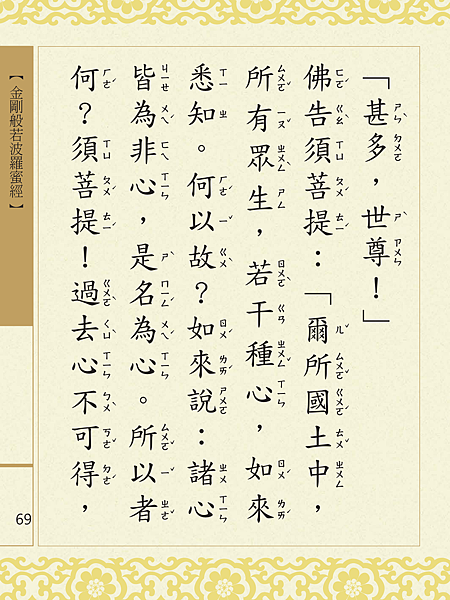 「甚多，世尊！」
佛告須菩提：「爾所國土中，
所有眾生，若干種心，如來
悉知。何以故？如來說：諸心
皆為非心，是名為心。所以者
何？須菩提！過去心不可得，
【金剛般若波羅蜜經】
69